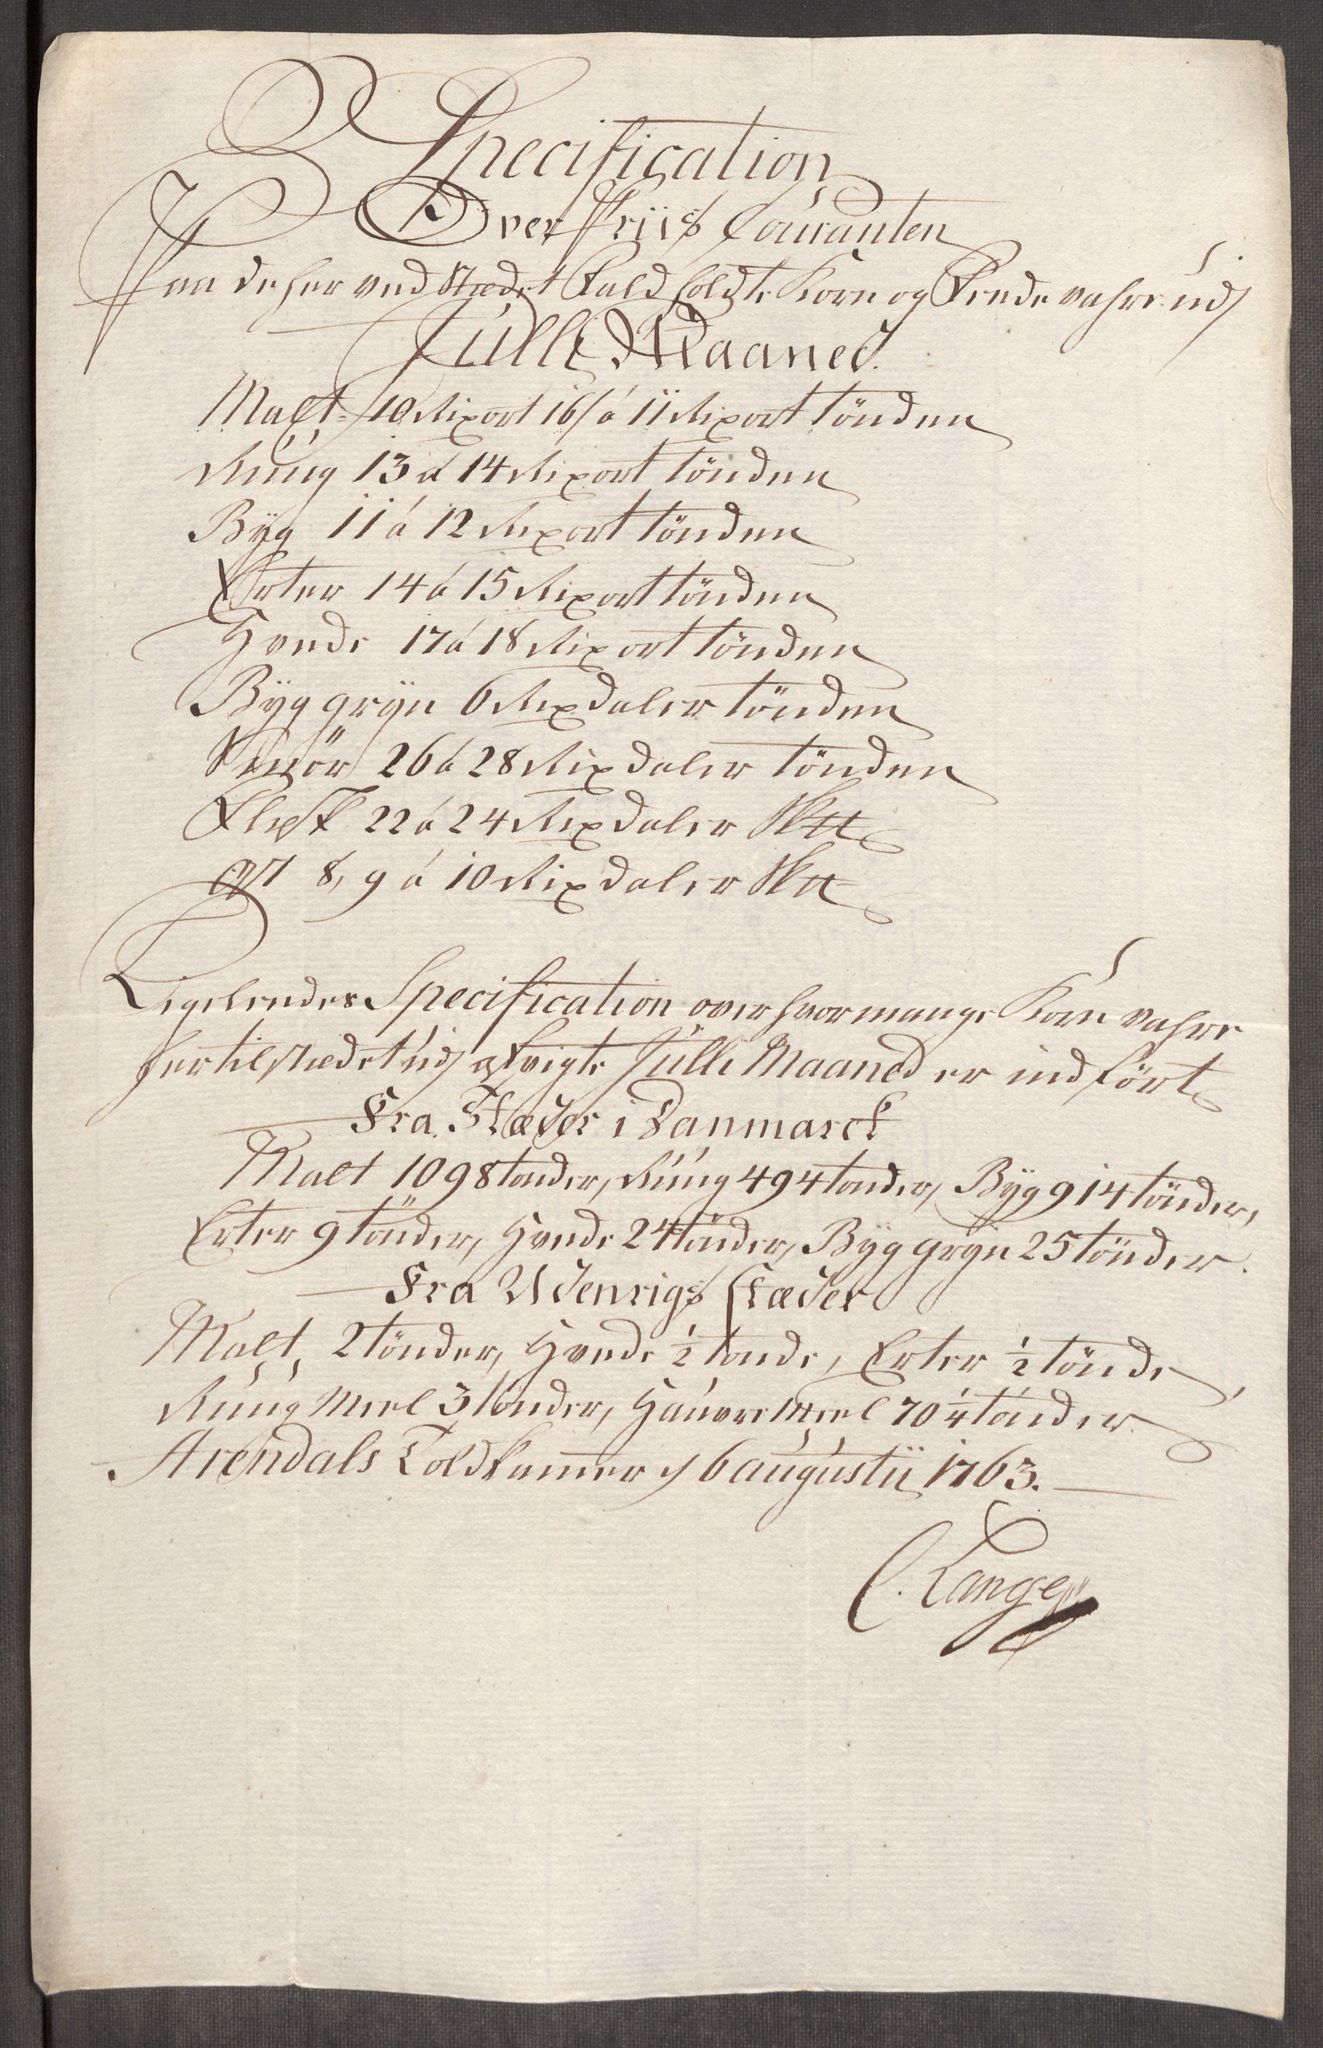 Specification
Over Priis Couranten
Paa de her ved Stædet fald holdte Korn og Fede vahre udj
Julli Maaned.
Malt 10 Rixort 16 s á 11 Rixort tönden
Rúug 13 á 14 Rixort tönden
Byg 11 á 12 Rixort tönden
Erter 14 á 15 Rixort tönden
Hvede 17 á 18 Rixort tönden
Byg gryn 6 Rixdaler tönden
Smör 26 á 28 Rixdaler tönden
Flesk 22 á 24 Rixdaler Sk℔
Ost 8, 9 á 10 Rixdaler Sk℔
Ligeledes Specification over hvormange Korn vahre
her til stædet udj afvigte Julli Maaned er indfört
Fra Stæder i Danmarck
Malt 1098 tönder, Rúug 494 tönder, Byg 914 tönder,
Erter 9 tönder, Hvede 24 tönder, Byg gryn 25 tönder.
Fra Udenrigs Stæder
Malt, 2 tönder, Hvede ½ tönde, Erter ½ tönde,
Rúug Meel 3 tönder, Haúvre Meel 70 ¼ tönder
Arendals Toldkammer d 6 augustii 1763.
C. Lange